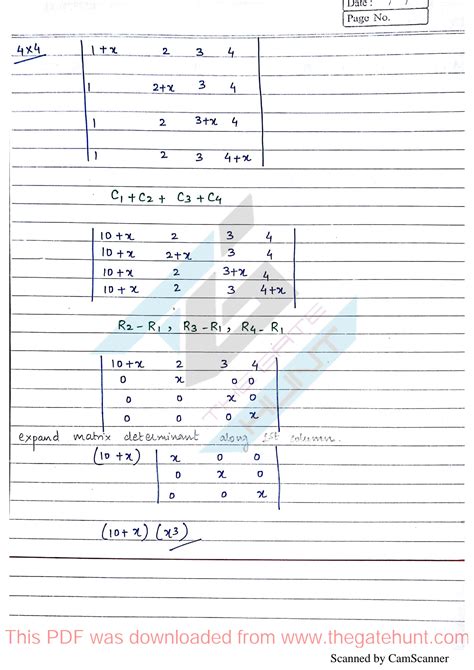 Date : / /
Page No.
4×4
1+x 2 3 4
1 2+x 3 4
1 2 3+x 4
1 2 3 4+x
C1+C2 + C3+C4
10+x 2 3 4
10+x 2+x 3 4
10+x 2 3+x 4
10+x 2 3 4+x
R2-R1, R3-R1, R4-R1
10+x 2 3 4
0 x 0 0
0 0 x 0
0 0 0 x
expand matrix determinant along 1st column.
(10+x) x 0 0
0 x 0
0 0 x
(10+x) (x3)
THE GATE
HUNT
This PDF was downloaded from www.thegatehunt.com
Scanned by CamScanner